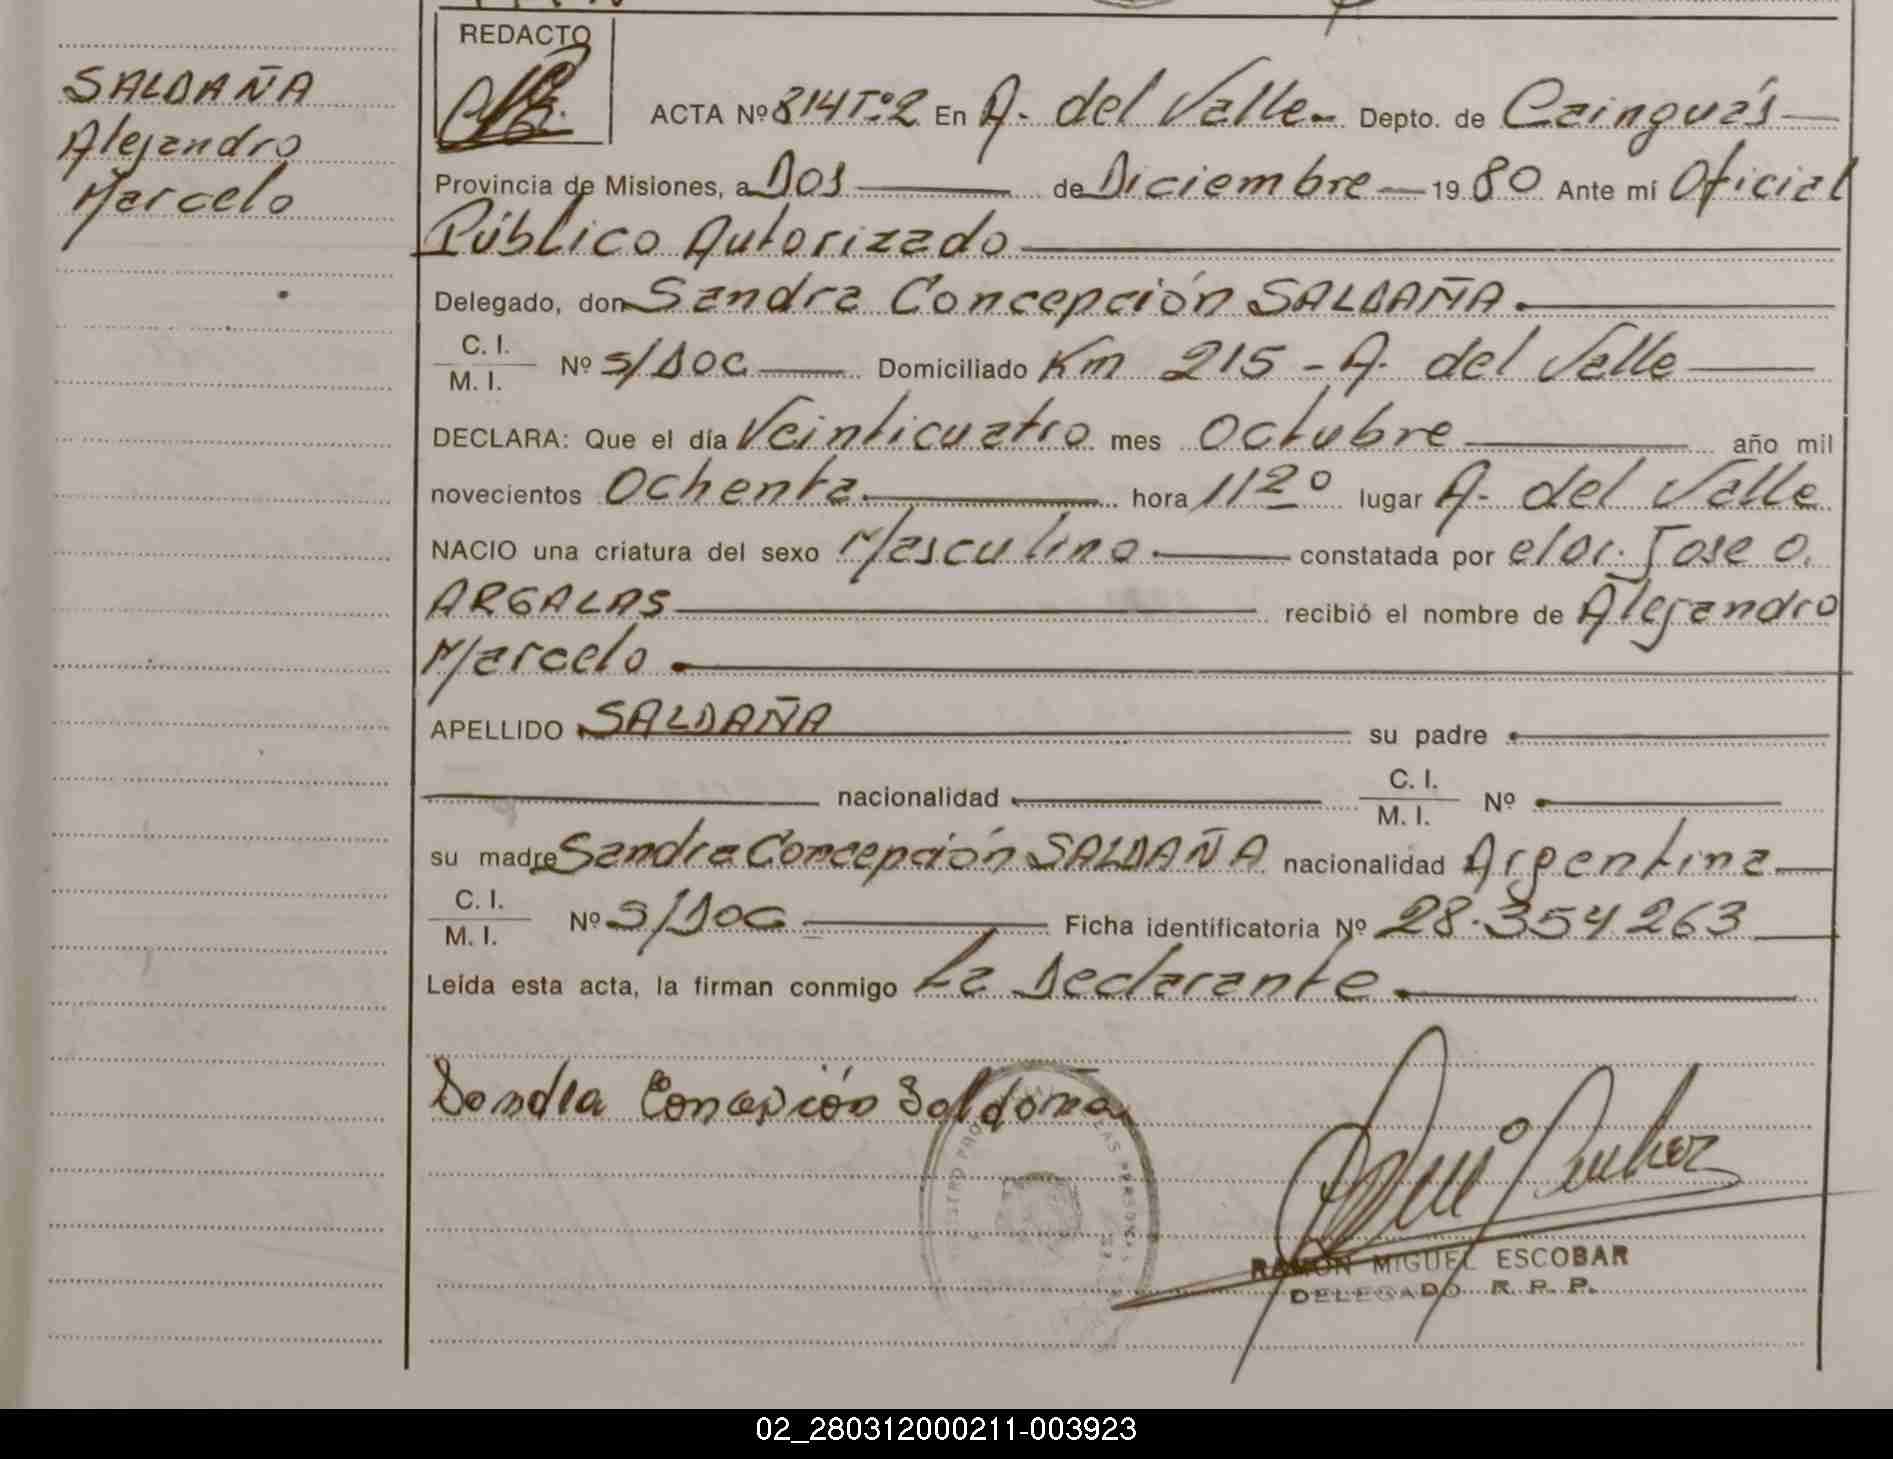 SALDAÑA
Alejandro
Marcelo
REDACTO
ACTA Nº 814 Tº 2 En A. del Valle Depto. de Cainguás
Provincia de Misiones, a Dos de Diciembre 19 80 Ante mí Oficial
Público Autorizado
Delegado, don Sandra Concepción SALDAÑA.
C. I.
M. I. Nº S/Doc Domiciliado Km 215 - A. del Valle
DECLARA: Que el día Veinticuatro mes Octubre año mil
novecientos Ochenta hora 11 20 lugar A. del Valle
NACIO una criatura del sexo Masculino constatada por el Dr. Jose O.
ARGALAS recibió el nombre de Alejandro
Marcelo
APELLIDO SALDAÑA su padre
nacionalidad C. I.
M. I. Nº
su madre Sandra Concepción SALDAÑA nacionalidad Argentina
C. I.
M. I. Nº S/Doc Ficha identificatoria Nº 28.354 263
Leída esta acta, la firman conmigo La Declarante
Sandra Concepción Saldaña
RAMON MIGUEL ESCOBAR
DELEGADO R. P. P.
02_280312000211-003923